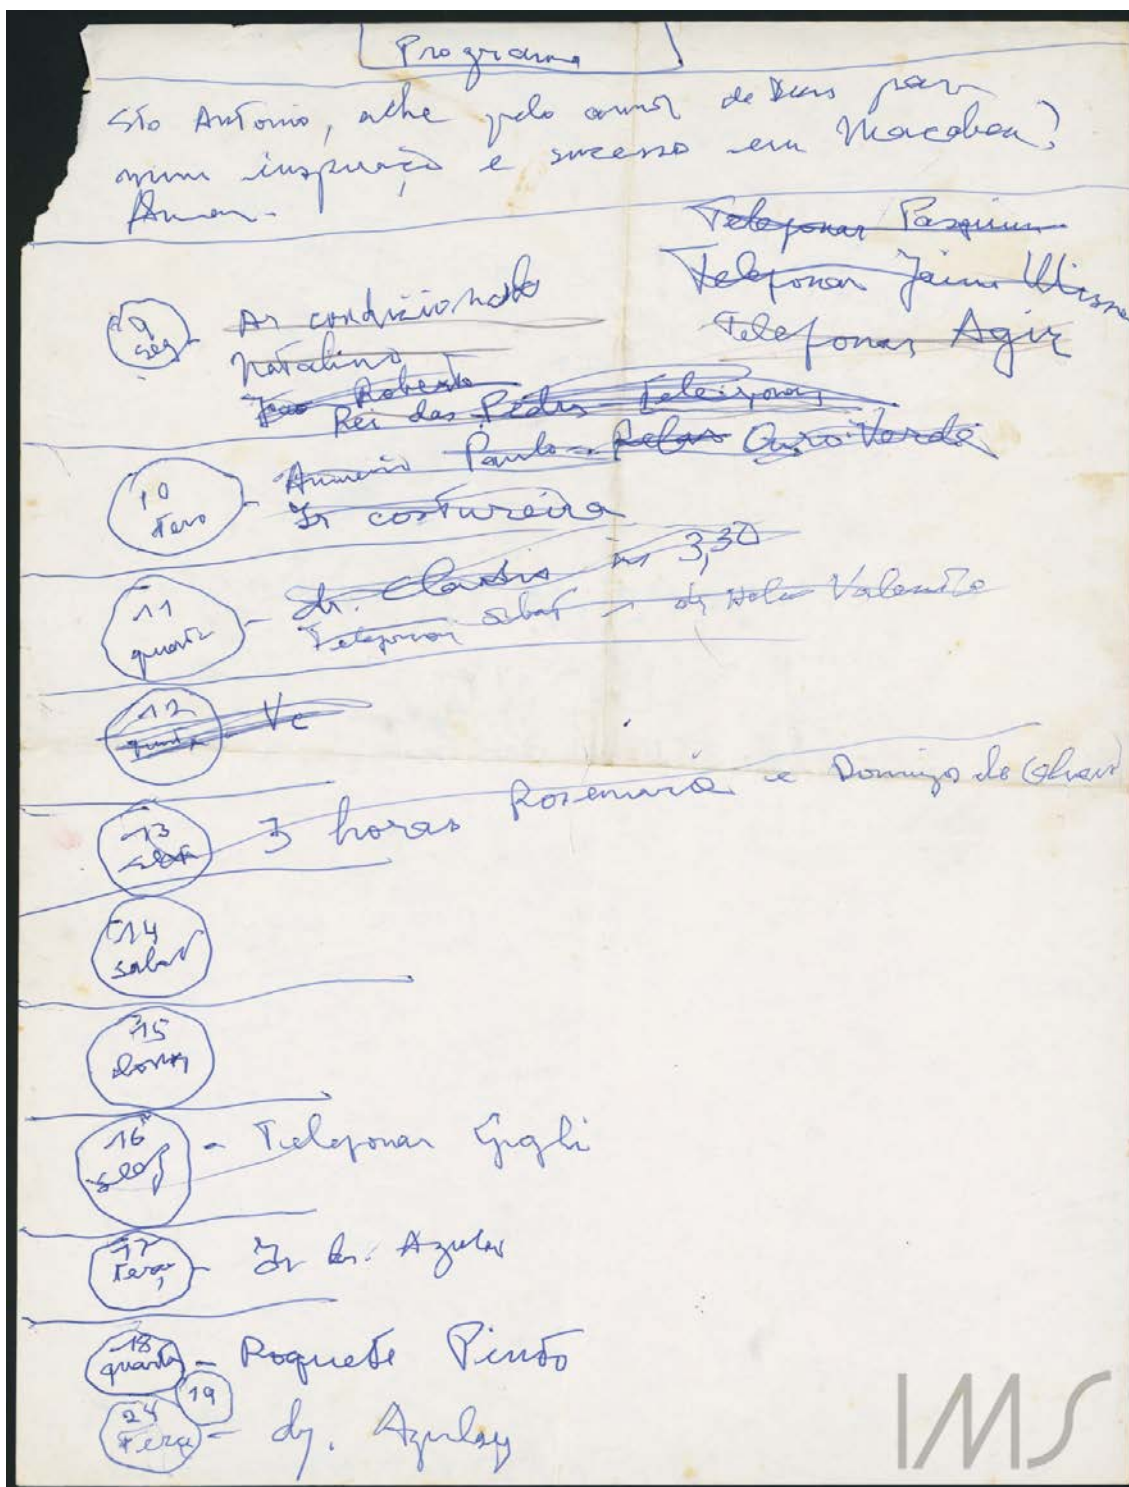 Programa
Sto Antonio, olhe pelo amor de Deus para
mim inspiração e sucesso em Macabea!
Amen.
Telefonar Pasquim
Telefonar Jaime
Telefonar Agir
9 seg - Ar condizionado
Natalino
João Roberto
Rei das Pedras Telefonar
10 terç - Paulo Ouro Verde
Ir costureira
11 quarta - dr. às 3,30
Telefonar dr Helio Valente
12 quinta - Ve
13 sexta 3 horas Rosemaria e Domingo de
14 sabad
15 doming
16 seg - Telefonar Gigli
17 terç, - Ir dr. Azulay
18 quarta - Roquete Pinto
19
24 terça - dr. Azulay
IMS